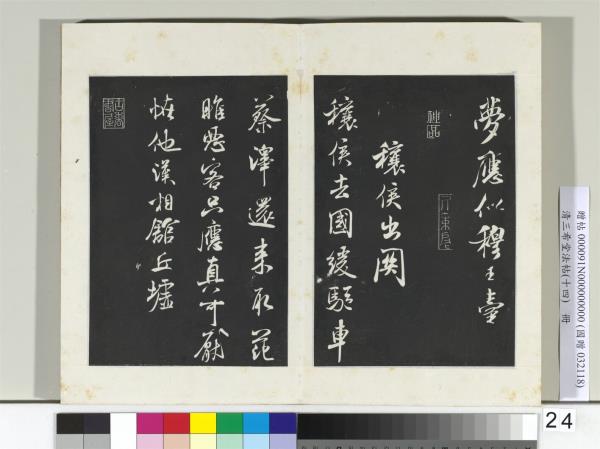 夢應似穆王
穰侯出関
穰侯去國緩駈車
蔡澤還來取范
睢客只應真可厭
恠他漢相館丘墟
神品
贈帖 000091N000000000 (國贈 032118)
清三希堂法帖(十四) 冊
24